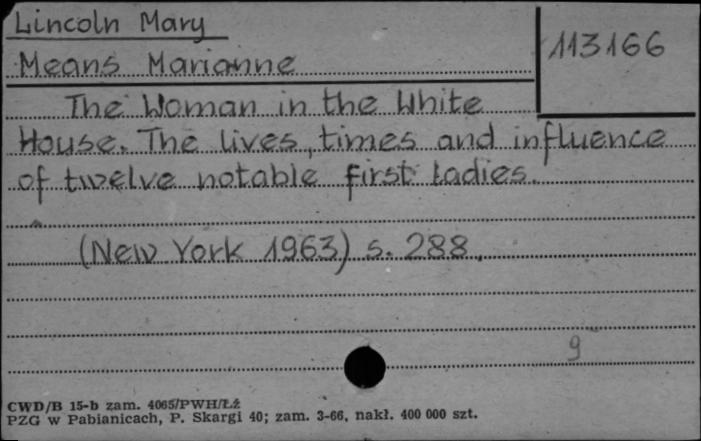 Lincoln Mary
113166
Means Marianne
The Woman in the White
House. The lives, times and influence
of twelve notable first ladies.
(New York 1963) s. 288.
9
CWD/B 15-b zam. 4065/PWH/Łż
PZG w Pabianicach, P. Skargi 40; zam. 3-66, nakł. 400 000 szt.